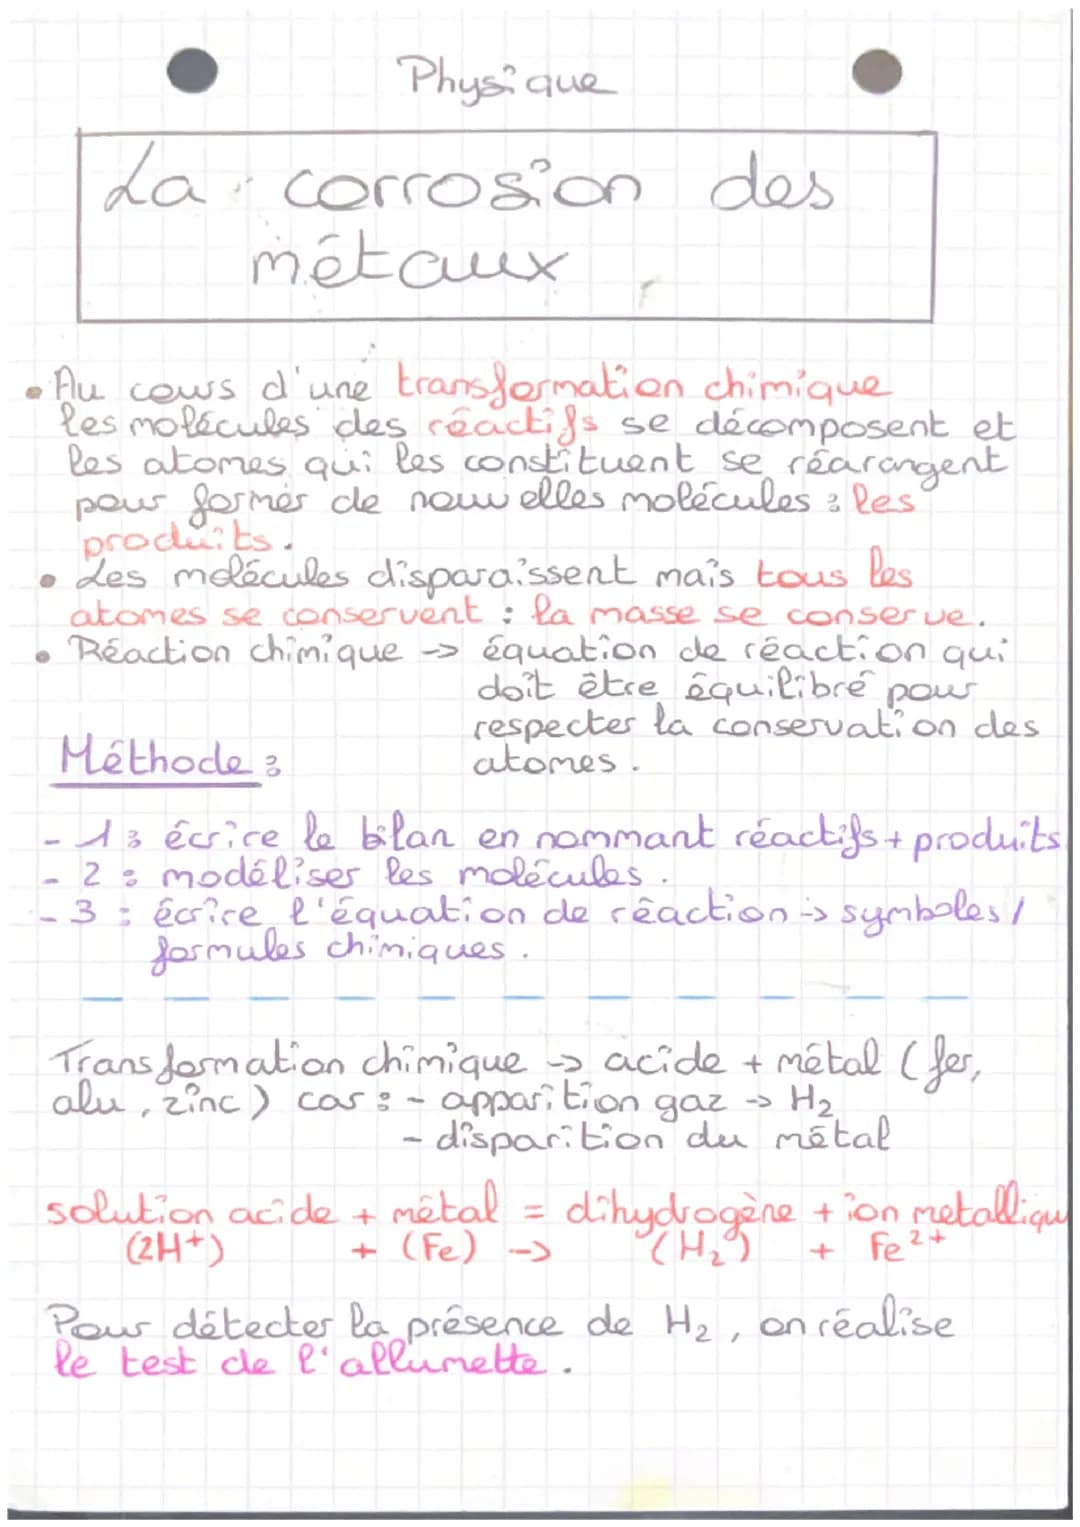 Physique
La corrosion des
métaux
• Au cours d'une transformation chimique
les molécules des réactifs se décomposent et
les atomes qui les constituent se réarangent
pour former de nouvelles molécules : les
produits.
• Les molécules disparaissent mais tous les
atomes se conservent : la masse se conserve.
• Réaction chimique -> équation de réaction qui
doit être équilibré pour
respecter la conservation des
atomes.
Méthode :
- 1 : écrire le bilan en nommant réactifs + produits
- 2 : modéliser les molécules.
- 3 : écrire l'équation de réaction -> symboles /
formules chimiques.
Transformation chimique -> acide + métal (fer,
alu, zinc) car : - apparition gaz -> H₂
- disparition du métal
solution acide + métal = dihydrogène + ion metalliqu
(2H⁺) + (Fe) -> (H₂) + Fe²⁺
Pour détecter la présence de H₂, on réalise
le test de l'allumette.